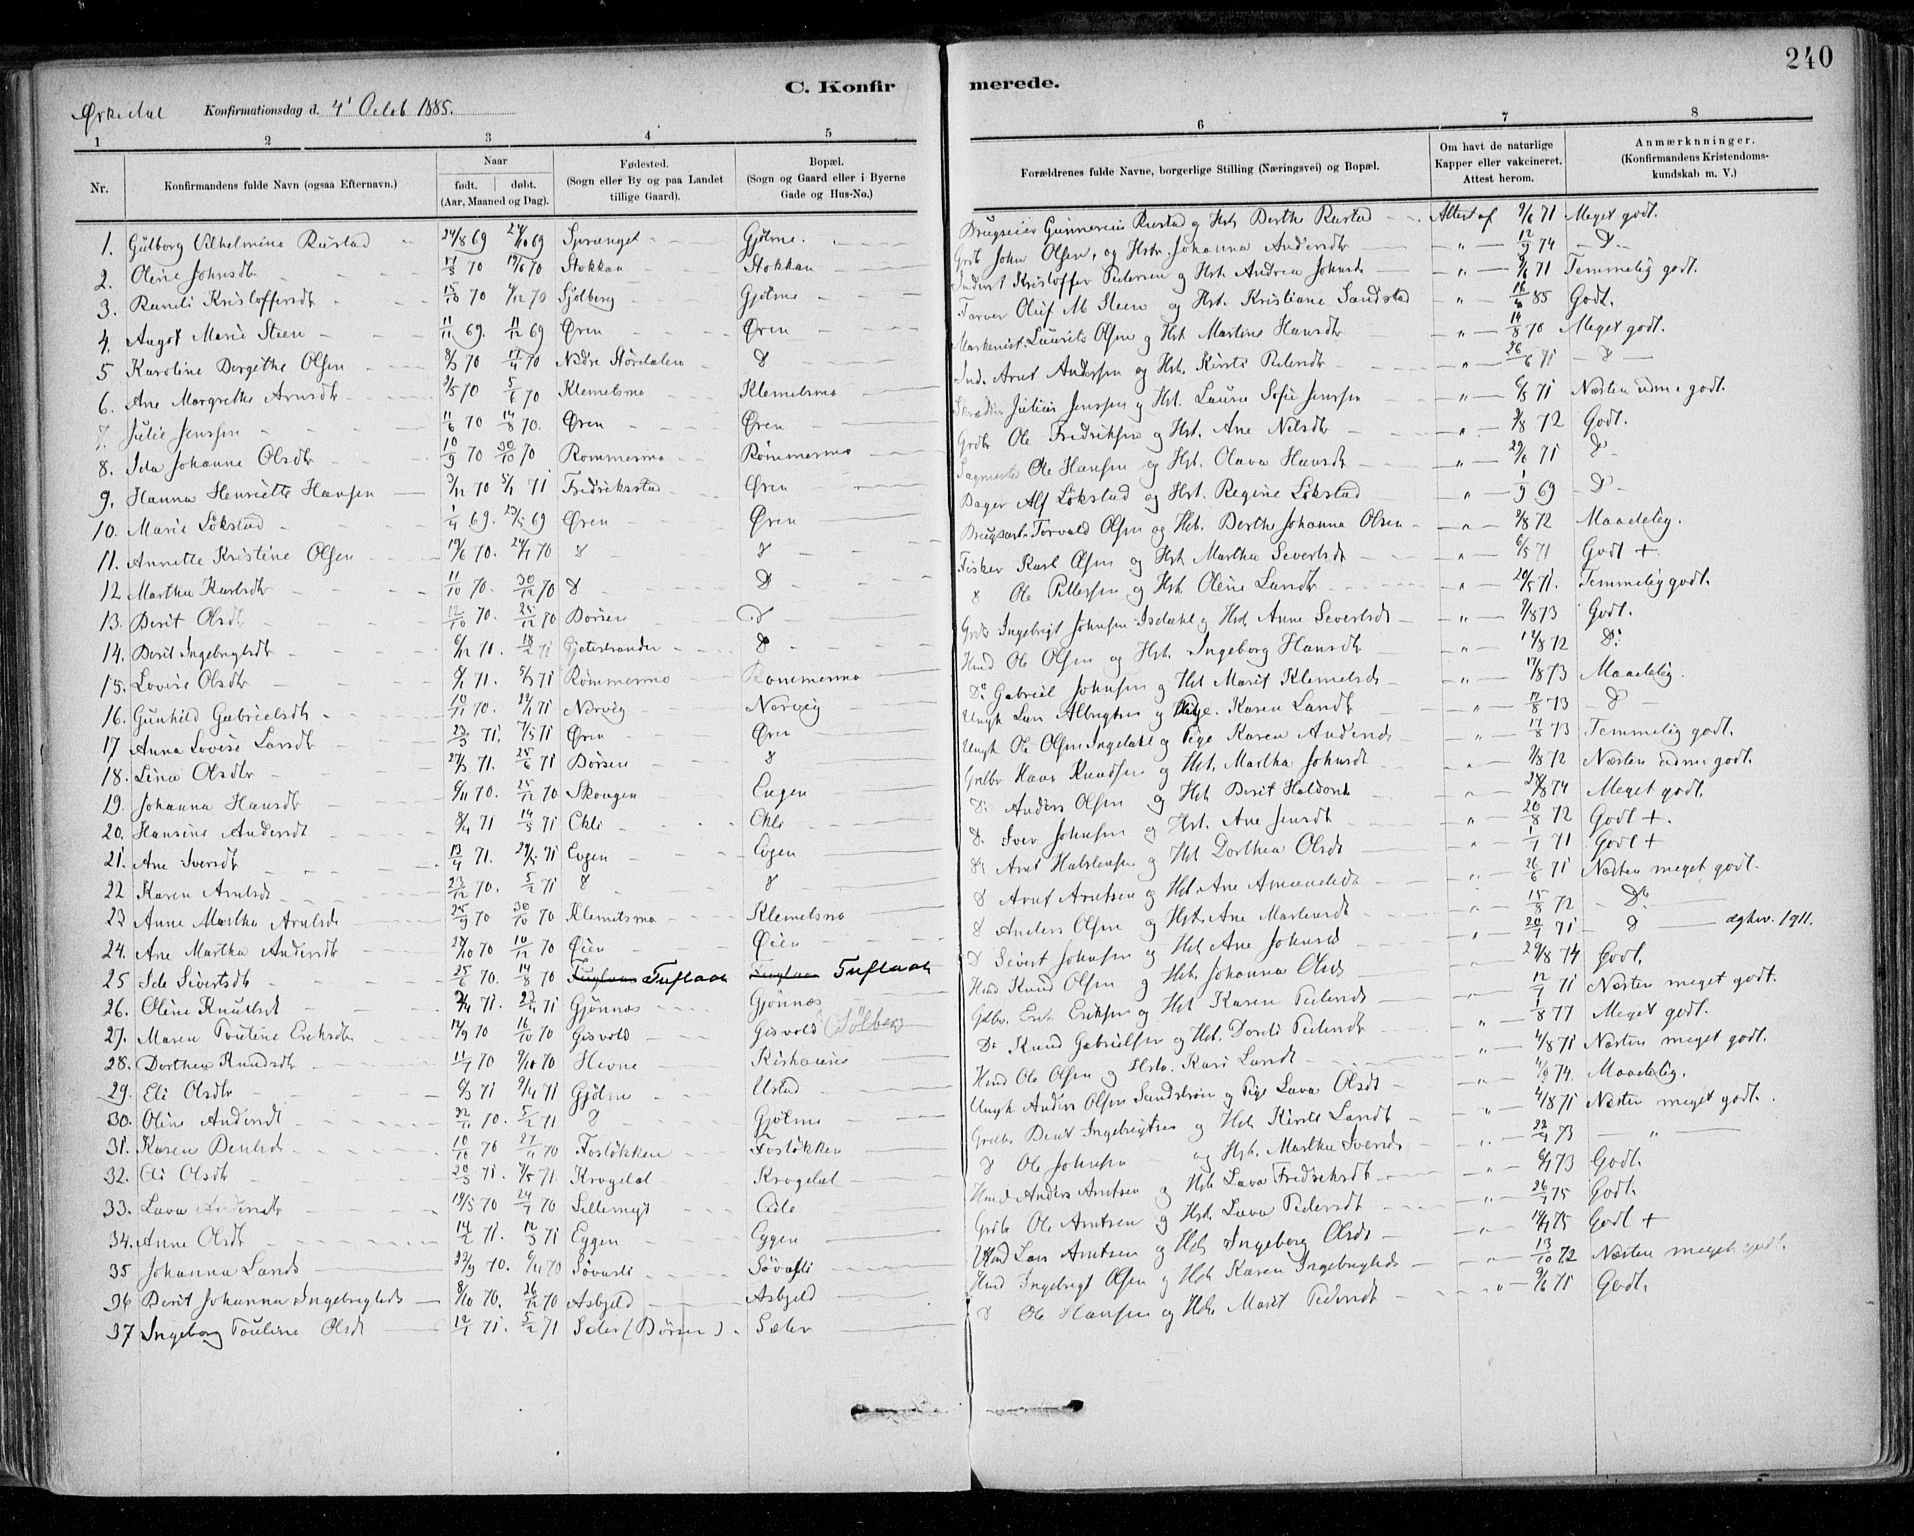 240
C. Konfirmerede.
Ørkedal Konfirmationsdag d. 4' Octob 1885.
1 2 3 4 5 6 7 8
Nr. Konfirmandens fulde Navn (ogsaa Efternavn.) Naar født. døbt. (Aar, Maaned og Dag). Fødested. (Sogn eller By og paa Landet tillige Gaard). Bopæl. (Sogn og Gaard eller i Byerne Gade og Hus-No.) Forældrenes fulde Navne, borgerlige Stilling (Næringsvei) og Bopæl. Om havt de naturlige Kapper eller vakcineret. Attest herom. Anmærknninger. (Konfirmandens Kristendomskundskab m. V.)
1. Gülborg Vilhelmine Rustad 24/8 69 Gjølme Brugseier Gunnerius Rustad og Hst Berthe Rustad Attest af 9/6 71 Meget godt.
2. Oline Johnsdtr 17/3 70 19/6 70 Stokkan Stokkan Grdb John Olsen, og Hstr. Johanna Andersdtr " 12/9 74 D
3. Randi Kristoffersdt 15/10 70 70 Sjølberg Gjølme Inderst Kristoffer Pedersen og Hst Andrea Johnsd " 71 Temmelig godt.
4. Angot Marie Steen 11/11 69. 11/12 69 Øren Øren Farver Oluf M Steen og Hst. Kristiane Sandstad " 85 Godt.
5 Karoline Bergithe Olsen 8/3 70 17/4 70 Nedre Størdalen D Laurits Olsen og Hst Martine Hansdtr " 14/8 70 Meget godt.
6. Ane Margrethe Arnsdtr 3/5 70 5/6 70 Klemetsmo Klemetsmo Ind. Arnt Andersen og Hst. Kirsti Pedersdtr " 26/6 71 D
7. Julie Jenssen 11/6 70 14/8 70. Øren Øren Skrædder Julius Jenssen og Hst. Laura Sofie Jenssen " 6/5 71 Næsten udm. godt.
8. Ida Johanne Olsdtr 10/9 70 30/10 70 Rommesmo Rømmesmo Grdb Ole Fredriksen og Hst. Ane Nilsdtr " 3/8 72 Godt.
9. Hanna Henriette Hansen 3/12 70 5/1 71 Fredriksstad Øren Sagmester Ole Hansen og Hst. Olava Hansdt " 29/6 71 D
10. Marie Løkstad 1/4 69. 23/5 69 Øren Øren Bager Alf Løkstad og Hst. Regine Løkstad " 1/9 69 D
11. Annette Kristine Olsen 19/6 70. 24/7 70 D D Brugsarb. Torvald Olsen og Hst. Berthe Johanna Olsen " 3/8 72 Maadelig.
12 Martha Karlsdtr 11/10 70. 30/12 70 D D Fisker Karl Olsen og Hst Martha Severtsdt " 6/5 71 Godt +
13. Berit Olsdt 12/10 70. 25/12 70 Børsen D D Ole Pettersen og Hst. Oline Larsdtr " 20/5 71. Temmelig godt.
14. Berit Ingebrigtsdt 6/12 71. 18/2 71 Gjetestranden D Grdb Ingebrigt Johnsen Isdahl og Hst Anne Severtsdt " 9/8 73 Godt.
15. Lovise Olsdtr 71. 5/3 71 Rømmesmo Rommesmo Hmd Ole Olsen og Hst. Ingeborg Hansdtr " 17/8 72 D:
16. Gunhild Gabrielsdt 10/11 70. 71 Nervig Nervig D: Gabriel Johnsen og Hst Marit Klemetsdt " 17/8 73 Maadelig.
17 Anna Lovise Larsdt 23/3 71. 7/5 71 Øren Øren Ungk Lars Albrigtsen og Pige. Karen Larsdt " 17/8 73 D
18. Lina Olsdtr 27/3 71. 25/6 71 Børsen D Ungk Ole Olsen Ingdahl og Pige Karen Andersd " 17/8 73 Temmelig godt.
19. Johanna Hansdt 6/11 70. 25/12 70 Skougen Engen Grdbr Hans Knudsen og Hst. Martha Johnsdt " 3/8 72 Næsten udm. godt.
20. Hansine Andersdt 8/4 71 14/5 71 Ekli Ekli D: Anders Olsen og Hst Berit Haldorsdt " 28/8 74 Meget godt.
21. Ane Iversdt 13/4 71. 29/5 71 Evgen Evgen D. Iver Johnsen og Hst. Ane Jensdt " 20/8 72 Godt +.
22 Karen Arntsdt 23/12 70. 5/2 71 D D D: Arnt Halstensen og Hst Dorthea Olsdt " 1/7 71 Godt +
23 Anne Martha Arntsdt 25/9 70 30/10 70 Klemetsmo Klemetsmo D Arnt Arntsen og Hst. Ane Amundsdt " 26/6 71 Næsten meget godt.
24. Ane Martha Andersdt 27/10 70 10/12 70 Øien Øien D Anders Olsen og Hst. Ane Martensdt " 15/8 72 D:
25 Ide Sivertsdt 25/6 70. 14/8 70 Tuflaat Tuflaat D Sivert Johnsen og Hst Ane Johnsd " 20/7 71 D utgkv. 1911.
26. Oline Knutsdt 71. 23/4 71 Gjønnæs Gjønnæs Hmd Knud Olsen og Hst. Johanna Olsd " 29/8 74 Godt.
27. Maren Pouline Eriksdtr 12/9 70 16/10 70 Gisvold Gisvold (Sølberg) Gdbr. Erik Eriksen og Hst Karen Pedersdt 12/7 71 Næsten meget godt.
28. Dorthea Knudsdt 11/7 70 9/10 70 Hevne Kishaugen D: Knud Gabrielsen og Hst. Dorthi Pedersdt " 1/8 77 Meget godt.
29. Eli Olsdtr 6/3 71 9/4 71 Gjølme Ustad Hmd Ole Olsen og Hstr. Kari Larsdt " 4/8 71 Næsten meget godt.
30. Oline Andersdt 22/11 70. 5/2 71 D Gjølme Ungk Anders Olsen Sandstrøm og Pige Lava Olsdt " 4/9 74. Maadelig.
31. Karen Bentsdt 10/10 70 27/11 70 Fosløkken Fosløkken Grdbr Bent Ingebrigtsen og Hst Kirsti Larsdt " 4/8 71 Næsten meget godt.
32. Eli Olsdt 20/3 71. 7/5 71 Krogdal Krogdal D Ole Johnsen og Hst. Martha Iversdt " 22/7 73 "
33. Lava Andersdtr 19/5 70 24/7 70 Hmd Anders Arntsen og Hst. Lava Fredriksdt " 6/7 73 Godt.
34. Anne Olsdt 14/2 71. 12/3 71 Eggen Eggen Grdb Ole Arntsen og Hst. Lava Pedersdt " 26/7 75 Godt.
35 Johanna Larsdt 22/9 70. 6/11 70 Søvasli Søvasli Hmd Lars Arntsen og Hst Ingeborg Olsdt " 75 Godt +
36 Berit Johanna Ingebrigtsdt 8/10 70. 26/12 70 Asbjeld Asbjeld Hmd Ingebrigt Olsen og Hst Karen Ingebrigtsdt " 13/10 72 Næsten meget godt.
37 Ingeborg Pouline Olsdt 12/1 71. 5/2 71 Sæter (Børsen). Sæter D Ole Hansen og Hst. Marit Pedersdt " 9/6 71 Godt.